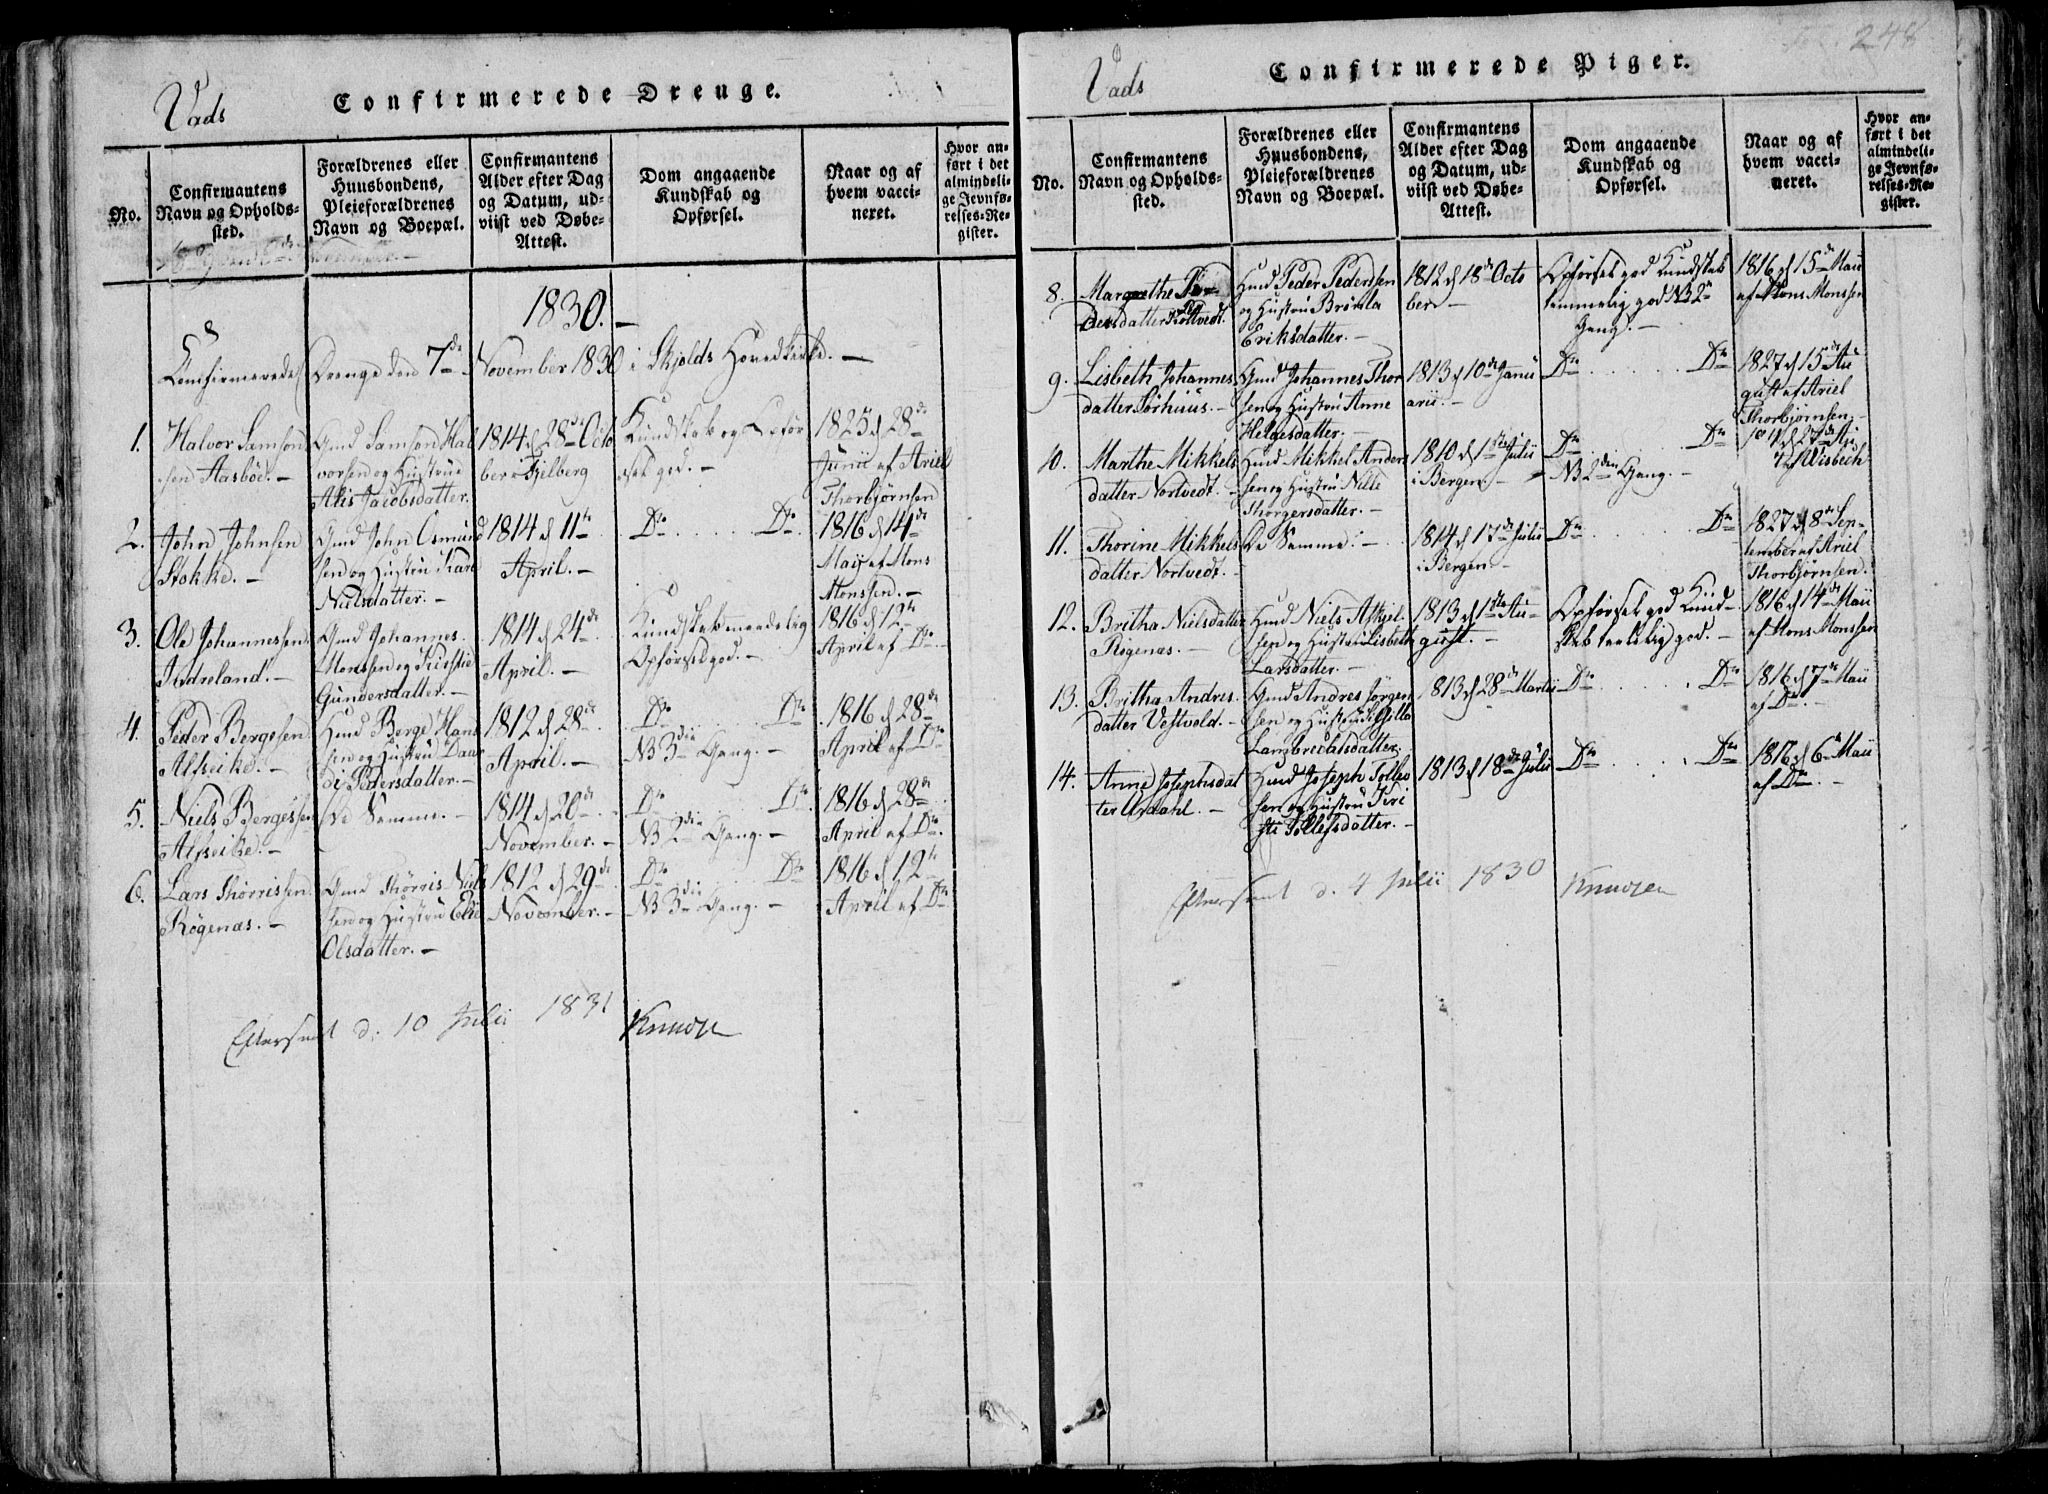 Vads
Confirmerede Drenge.
No.
Confirmantens
Navn og Opholds-
sted.
Forældrenes eller
Huusbondens,
Plejeforældrenes
Navn og Boepæl.
Confirmantens
Alder efter Dag
og Datum, ud-
viist ved Døbe-
Attest.
Dom angaaende
Kundskab og
Opførsel.
Naar og af
hvem vacci-
neret.
Hvor an-
ført i det
almindeli-
ge Jevnfø-
relses-Re-
gister.
1830. –
Confirmerede Drenge den 7de November 1830 i Skjolds Hovedkirke. –
1.
Halvor Samson
sen Aasböe. –
Gmd Samson Hal
vorsen og Hustrue
Alis Jacobsdatter.
1814 d 28de Octo
ber Fjelberg
Kundskab og Opför
sel god. –
1825 d 28de
Junii af Ariel
Thorbjörnsen
2.
John Johnsen
Stokke. –
Gmd John Osmund
sen og Hustru Kari
Nielsdatter. –
1814 d 11te
April. –
Do . . . . . Do
1816 d 14de
Maii af Mons
Monssen. –
3.
Ole Johannessen
Indreland. –
Gmd Johannes
Monssen og Kirstie
Gundersdatter. –
1814 d 24de
April. –
Kundskab maadelig
Opførsel god. –
1816 d 12te
April af Do
4.
Peder Bergesen
Alfseike. –
Hmd Berge Hans
sen og Hustru Daar
di Pedersdatter. –
1812 d 28de
April. –
Do . . . . Do
NB 3die Gang. –
1816 d 28de
April af Do
5.
Niels Bergessen
Alfseike. –
De Samme. –
1814 d 20de
November. –
Do . . . . Do
NB 2den Gang. –
1816 d 28de
April af Do.
6.
Lars Thorrissen
Rögenas. –
Gmd Thörris Niels
sen og Hustru Elie
Olsdatter. –
1812 d 29de
November. –
Do . . . . Do
NB 3die Gang. –
1816 d 12te
April af Do
Efterseet d. 10 Julii 1831 Knudsen
248
Vads
Confirmerede Piger.
No.
Confirmantens
Navn og Opholds-
sted.
Forældrenes eller
Huusbondens,
Plejeforældrenes
Navn og Boepæl.
Confirmantens
Alder efter Dag
og Datum, ud-
viist ved Døbe-
Attest.
Dom angaaende
Kundskab og
Opførsel.
Naar og af
hvem vacci-
neret.
Hvor an-
ført i det
almindeli-
ge Jevnfø-
relses-Re-
gister.
8.
Margrethe Pe-
dersdatter
Hmd Peder Pederssen
og Hustru Brömla
Eriksdatter. –
1812 d 18de Octo
ber –
Opførsel god Kundskab
temmelig god NB 2den
Gang. –
1816 d 15de Maii
af Mons Monssen
9.
Lisbeth Johannes
datter Sörhuus. –
Gmd Johannes Thor
sen og Hustru Anne
Helgesdatter. –
1813 d 10de Janu
arii. –
Do . . . . . . Do
1827 d 15de Au
gust af Ariel
Thorbjörnsen –
10.
Marthe Mikkels
datter Nortvedt. –
Hmd Mikkel Anders
sen og Hustru Nille
Thorgersdatter. –
1810 d 1ste Julii
i Bergen –
Do . . . . . . Do
NB 2den Gang. –
d 27de Au
Wisbech
11.
Thorine Mikkels
datter Nortvedt. –
De Samme. –
1814 d 17de Julii
i Bergen. –
Do . . . . . . Do
1827 d 8de Sep-
tember af Ariel
Thorbjörnsen.
12.
Britha Nielsdatter
Rögenas. –
Hmd Niels Askjel
sen og Hustru Lisbeth
Larsdatter. –
1813 d 1ste Au-
gust. –
Opførsel god Kund-
skab temmelig god. –
1816 d 14de Maii
af Mons Monssen
13.
Britha Andres
datter Vestvold. –
Gmd Andres Jörgen
sen og Hustru
Lambrechtsdatter.
1813 d 28de Martii
Do . . . . . . Do
1816 d 7de Maii
af Do. –
14.
Anne Josephsdat
ter –
Hmd Joseph Tollev
sen og Hustru Kiri
sti Tollefsdatter. –
1813 d 18de Julii
Do . . . . . . Do
1816 d 6te Maii
af Do. –
Efterseet d. 4 Julii 1830 Knudsen